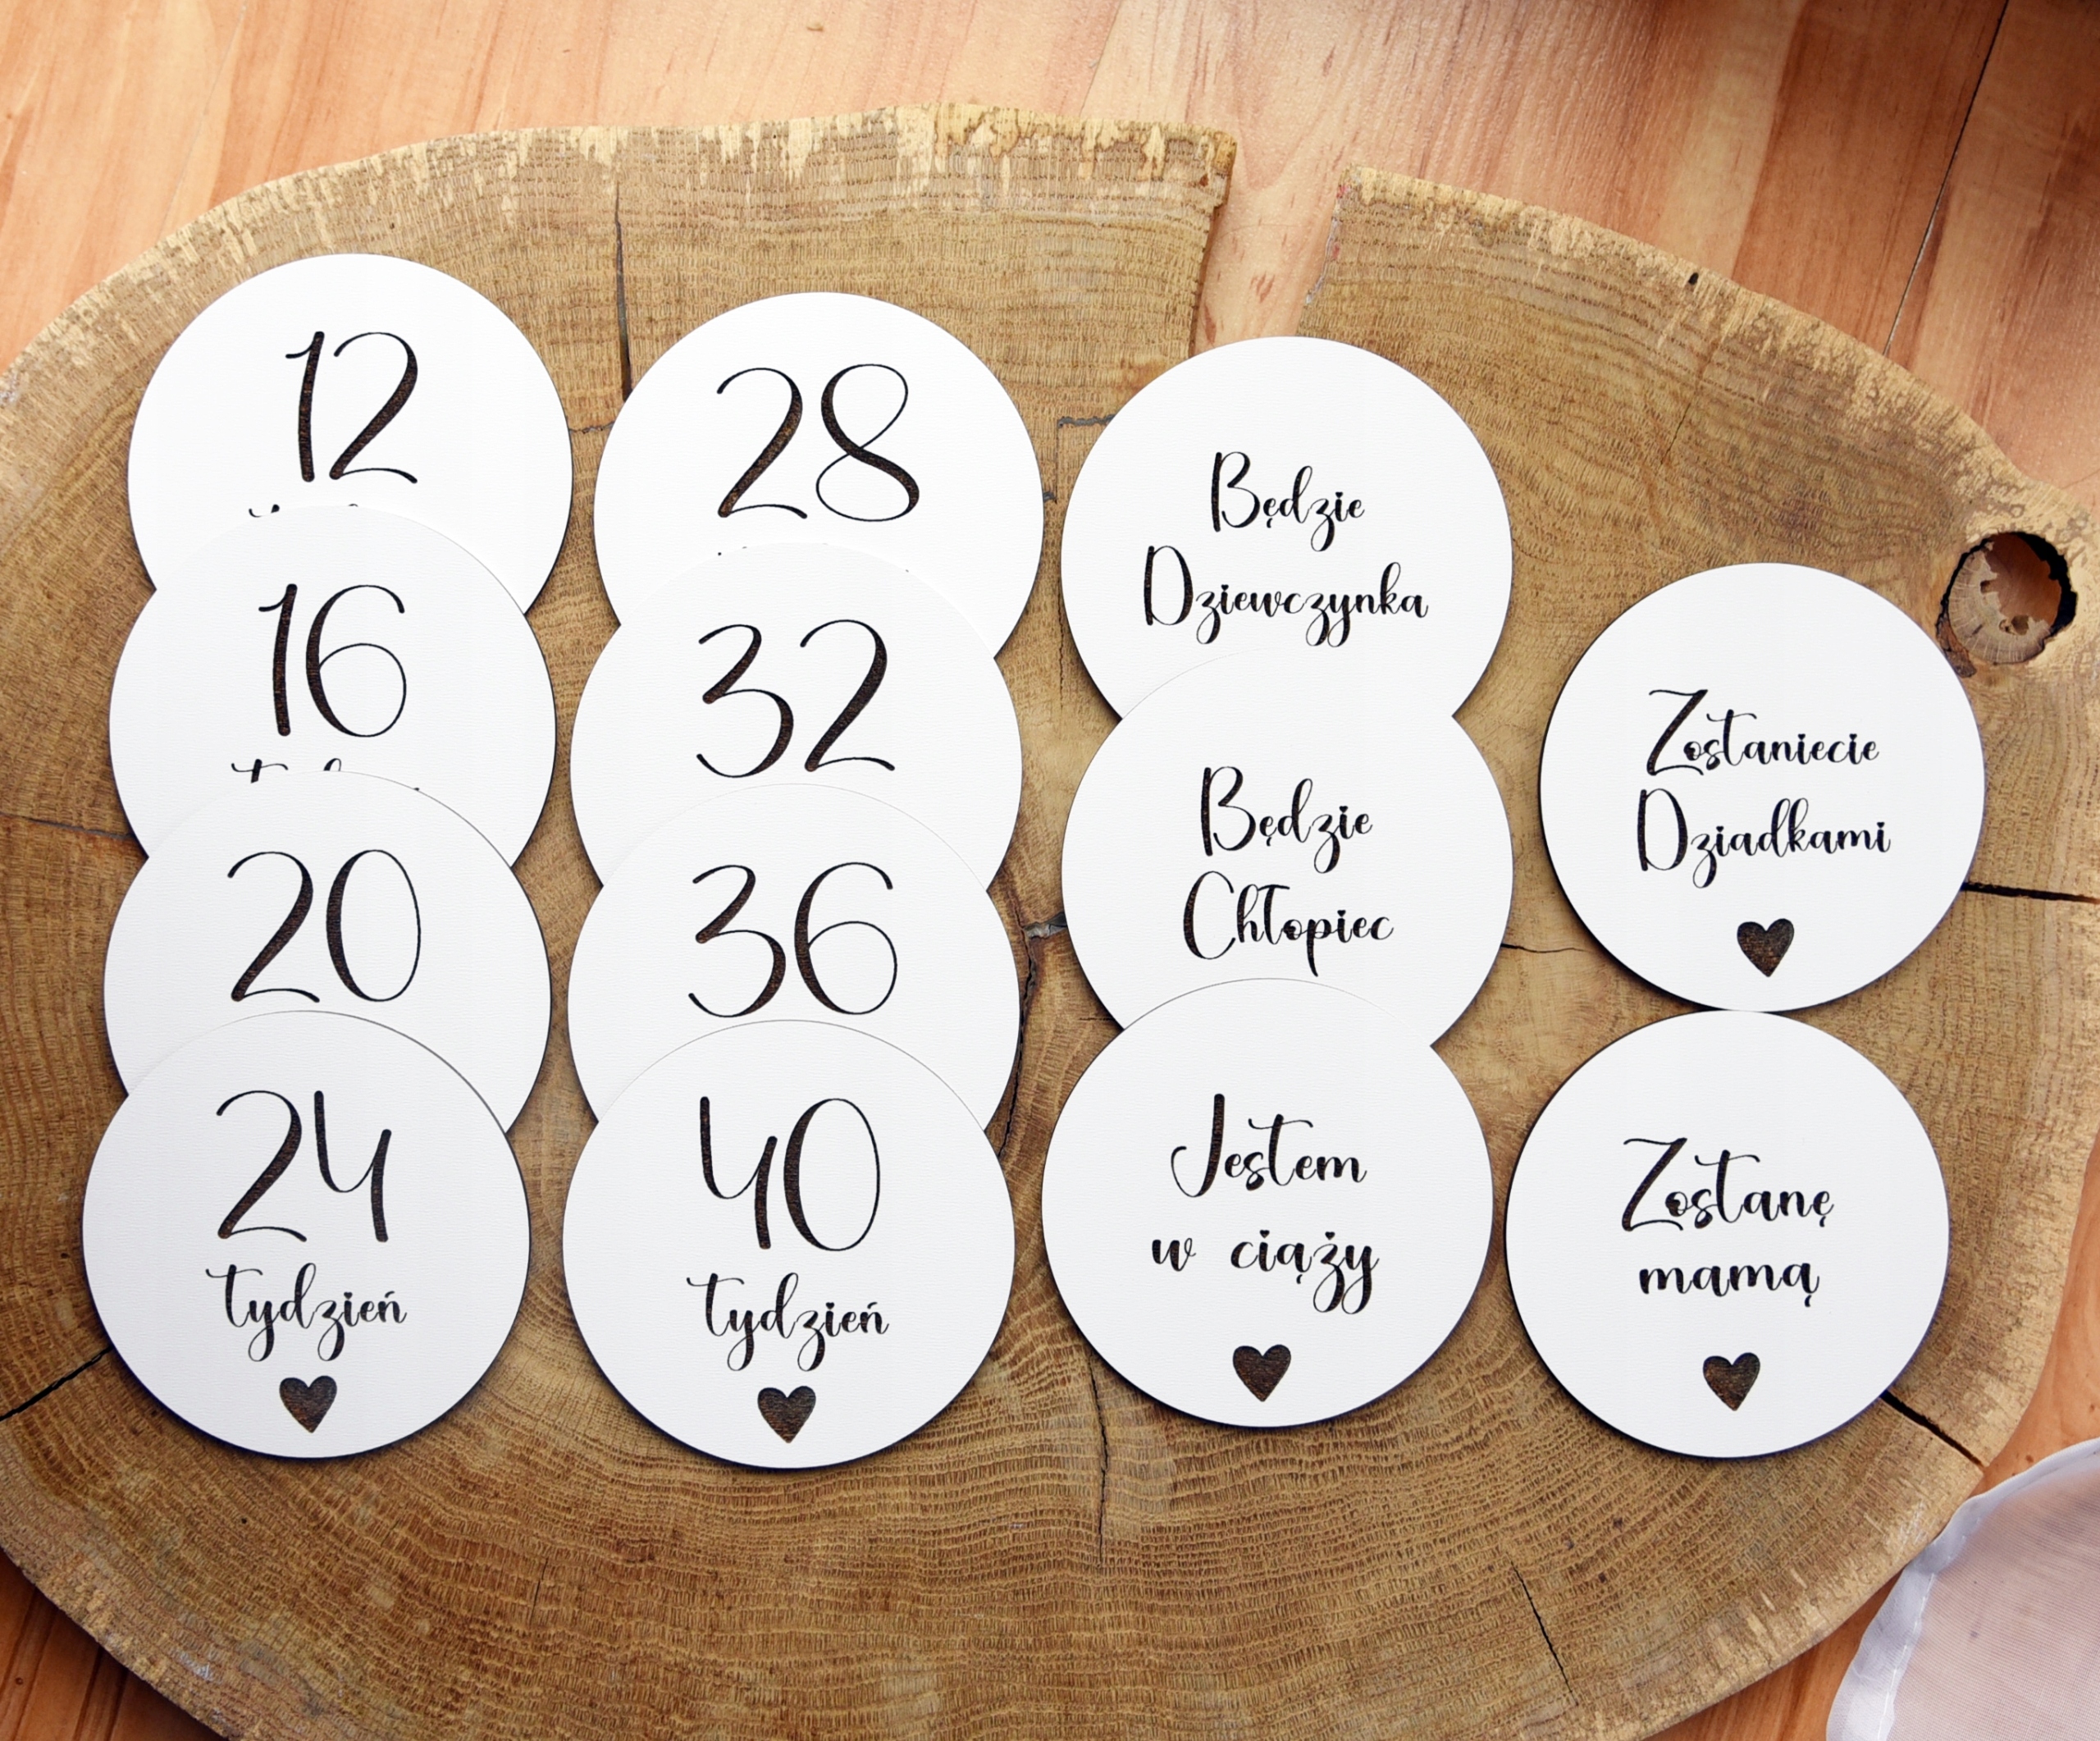 12
16
20
24
tydzień
28
32
36
40
tydzień
Będzie
Dziewczynka
Będzie
Chłopiec
Jestem
w ciąży
Zostaniecie
Dziadkami
Zostanę
mamą